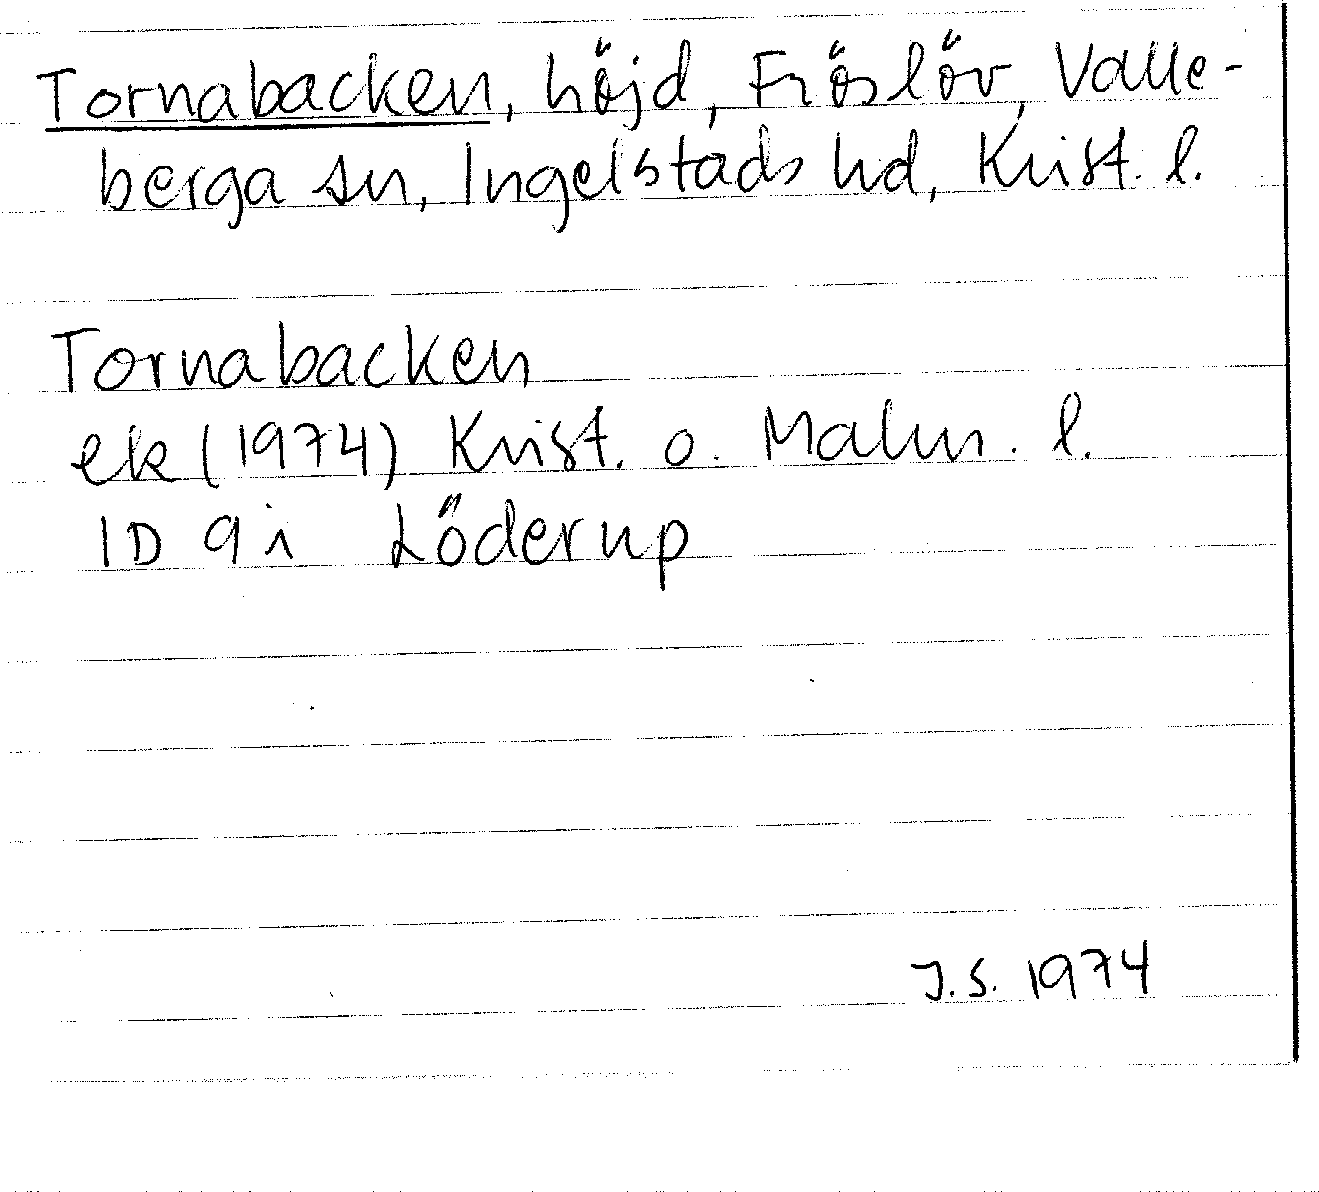 Tornabacken, höjd, Fröslöv, Valle-
berga sn, Ingelstads hd, Krist. l.
Tornabacken
ek (1974) Krist. o. Malm. l.
1D 9i Löderup
J.S. 1974